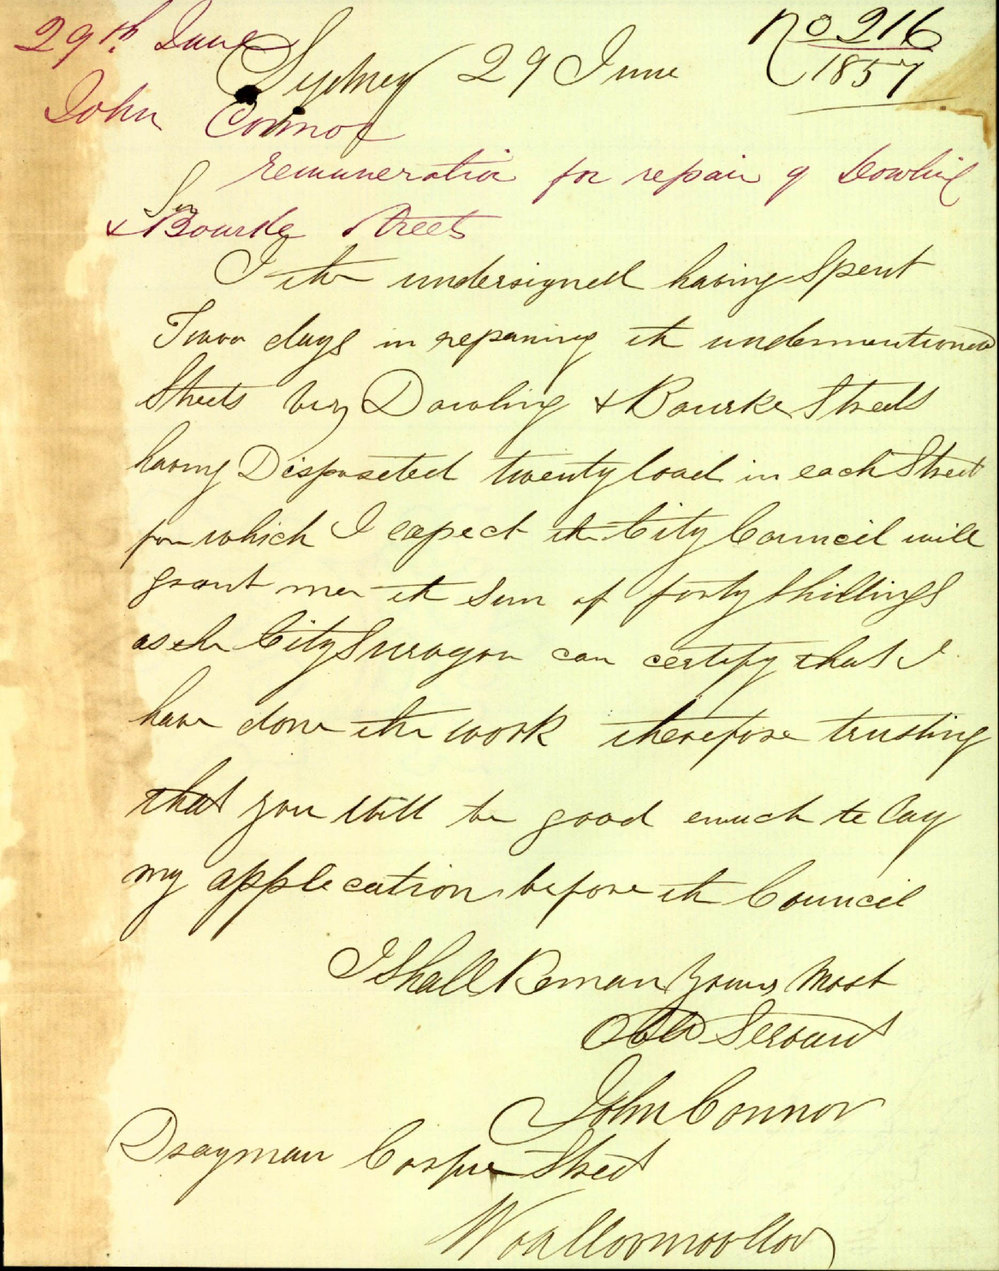 29th June
No 216
1857
Sydney 29 June
John Connor
remuneration for repair of Dowling
Sir
& Bourke Streets
I the undersigned having Spent
Twoo days in reparing the undermentioned
Streets viz Dowling & Bourke Streets
having Disposeted twenty load in each Street
for which I expect the City Council will
grant me the Sum of forty Shillings
as the City Suravyor can certify that I
have done the work therefore trusting
that you Will be good enuch to lay
my application before the Council
I Shall Reman Yours Most
Obt Servant
John Connor
Drayman Corpue Street
Woolloomoolloo